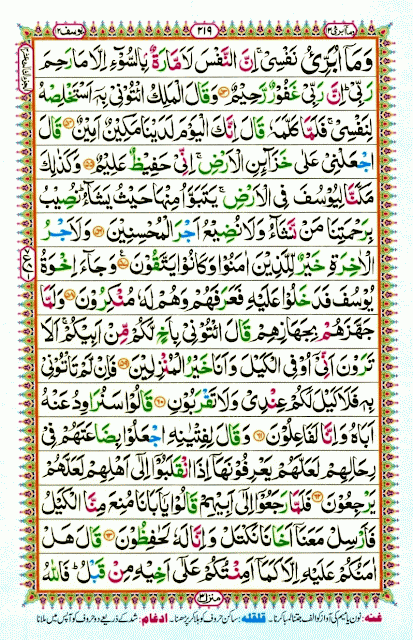 وما ابرئ ١٣ ٢١٩ يوسف ١٢
وَمَآ اُبَرِّئُ نَفْسِیْ ۚ اِنَّ النَّفْسَ لَاَمَّارَةٌۢ بِالسُّوْٓءِ اِلَّا مَا رَحِمَ
رَبِّیْ ؕ اِنَّ رَبِّیْ غَفُوْرٌ رَّحِیْمٌ ﴿۵۳﴾ وَقَالَ الْمَلِكُ ائْتُوْنِیْ بِهٖۤ اَسْتَخْلِصْهُ
لِنَفْسِیْ ۚ فَلَمَّا كَلَّمَهٗ قَالَ اِنَّكَ الْیَوْمَ لَدَیْنَا مَكِیْنٌ اَمِیْنٌ ﴿۵۴﴾ قَالَ
اجْعَلْنِیْ عَلٰی خَزَآئِنِ الْاَرْضِ ۚ اِنِّیْ حَفِیْظٌ عَلِیْمٌ ﴿۵۵﴾ وَكَذٰلِكَ
مَكَّنَّا لِیُوْسُفَ فِی الْاَرْضِ ۚ یَتَبَوَّاُ مِنْهَا حَیْثُ یَشَآءُ ؕ نُصِیْبُ
بِرَحْمَتِنَا مَنْ نَّشَآءُ وَلَا نُضِیْعُ اَجْرَ الْمُحْسِنِیْنَ ﴿۵۶﴾ وَلَاَجْرُ
الْاٰخِرَةِ خَیْرٌ لِّلَّذِیْنَ اٰمَنُوْا وَكَانُوْا یَتَّقُوْنَ ﴿۵۷﴾ وَجَآءَ اِخْوَةُ
یُوْسُفَ فَدَخَلُوْا عَلَیْهِ فَعَرَفَهُمْ وَهُمْ لَهٗ مُنْكِرُوْنَ ﴿۵۸﴾ وَلَمَّا
جَهَّزَهُمْ بِجَهَازِهِمْ قَالَ ائْتُوْنِیْ بِاَخٍ لَّكُمْ مِّنْ اَبِیْكُمْ ۚ اَلَا
تَرَوْنَ اَنِّیْۤ اُوْفِی الْكَیْلَ وَاَنَا خَیْرُ الْمُنْزِلِیْنَ ﴿۵۹﴾ فَاِنْ لَّمْ تَاْتُوْنِیْ
بِهٖ فَلَا كَیْلَ لَكُمْ عِنْدِیْ وَلَا تَقْرَبُوْنِ ﴿۶۰﴾ قَالُوْا سَنُرَاوِدُ عَنْهُ
اَبَاهُ وَاِنَّا لَفٰعِلُوْنَ ﴿۶۱﴾ وَقَالَ لِفِتْیٰنِهِ اجْعَلُوْا بِضَاعَتَهُمْ فِیْ
رِحَالِهِمْ لَعَلَّهُمْ یَعْرِفُوْنَهَاۤ اِذَا انْقَلَبُوْۤا اِلٰۤی اَهْلِهِمْ لَعَلَّهُمْ
یَرْجِعُوْنَ ﴿۶۲﴾ فَلَمَّا رَجَعُوْۤا اِلٰۤی اَبِیْهِمْ قَالُوْا یٰۤاَبَانَا مُنِعَ مِنَّا الْكَیْلُ
فَاَرْسِلْ مَعَنَاۤ اَخَانَا نَكْتَلْ وَاِنَّا لَهٗ لَحٰفِظُوْنَ ﴿۶۳﴾ قَالَ هَلْ
اٰمَنُكُمْ عَلَیْهِ اِلَّا كَمَاۤ اَمِنْتُكُمْ عَلٰۤی اَخِیْهِ مِنْ قَبْلُ ؕ فَاللّٰهُ
منزل ٣
غنه: نون یا میم کی آواز کو الف جتنا لمبا کرنا۔ قلقله: ساکن حروف کو ہلا کر پڑھنا۔ ادغام: شد کے ذریعے دو حروف کو آپس میں ملانا